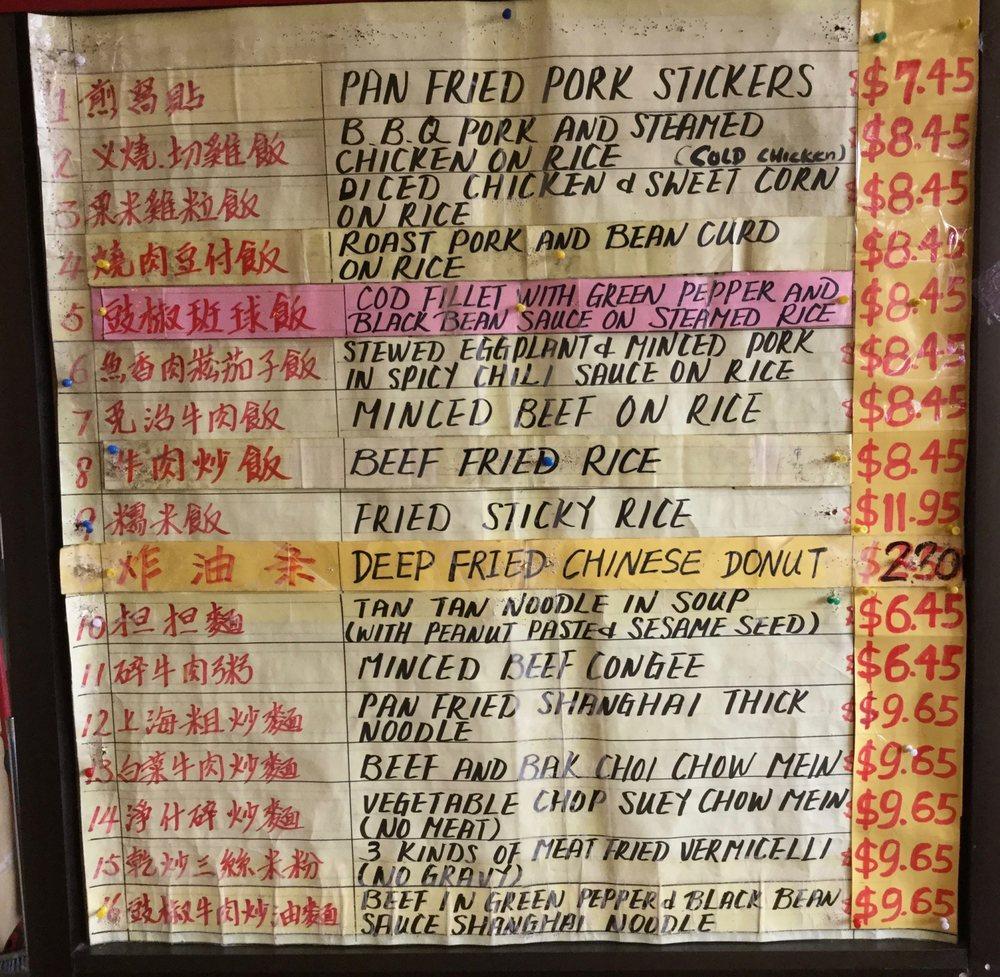 1 煎窩貼 PAN FRIED PORK STICKERS $7.45
2 叉燒.切雞飯 B.B.Q PORK AND STEAMED $8.45
CHICKEN ON RICE (COLD CHICKEN)
3 粟米雞粒飯 DICED CHICKEN & SWEET CORN $8.45
ON RICE
4 燒肉豆付飯 ROAST PORK AND BEAN CURD $8.45
ON RICE
5 豉椒班球飯 COD FILLET WITH GREEN PEPPER AND $8.45
BLACK BEAN SAUCE ON STEAMED RICE
6 魚香肉崧茄子飯 STEWED EGGPLANT & MINCED PORK $8.45
IN SPICY CHILI SAUCE ON RICE
7 免治牛肉飯 MINCED BEEF ON RICE $8.45
8 牛肉炒飯 BEEF FRIED RICE $8.45
9 糯米飯 FRIED STICKY RICE $11.95
炸油条 DEEP FRIED CHINESE DONUT $2.30
10 担担麵 TAN TAN NOODLE IN SOUP $6.45
(WITH PEANUT PASTE & SESAME SEED)
11 碎牛肉粥 MINCED BEEF CONGEE $6.45
12 上海粗炒麵 PAN FRIED SHANGHAI THICK $9.65
NOODLE
13 白菜牛肉炒麵 BEEF AND BAK CHOI CHOW MEIN $9.65
14 淨什碎炒麵 VEGETABLE CHOP SUEY CHOW MEIN $9.65
(NO MEAT)
15 乾炒三絲米粉 3 KINDS OF MEAT FRIED VERMICELLI $9.65
(NO GRAVY)
16 豉椒牛肉炒油麵 BEEF IN GREEN PEPPER & BLACK BEAN $9.65
SAUCE SHANGHAI NOODLE